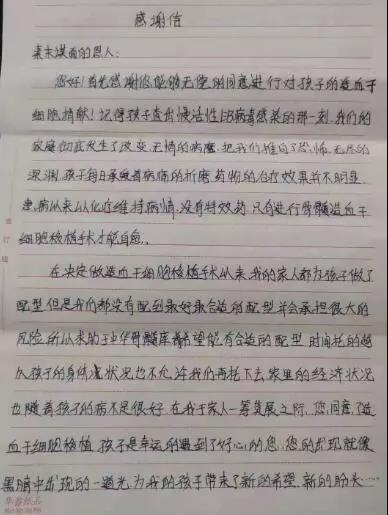 感谢信
素未谋面的恩人:
您好!首先感谢您能够无偿的同意进行对孩子的造血干
细胞捐献!记得孩子查出慢活性EB病毒感染的那一刻,我们的
家庭彻底发生了改变,无情的病魔,把我们推向了恐怖、无尽的
深渊,孩子每日承受着病痛的折磨,药物的治疗效果并不明显,
患病以来以化疗维持病情,没有特效药,只有进行骨髓造血干
细胞移植手术才能自愈。
在决定做造血干细胞移植手术以来,我的家人都为孩子做了
配型,但是我们都没有配到最好最合适的配型,并会承担很大的
风险,所以求助于中华骨髓库,希望能有合适的配型,时间耗的越
久孩子的身体状况也不允许我们再拖下去,家里的经济状况
也随着孩子的病不是很好,在我于家人一筹莫展之际,您同意了造
血干细胞移植,孩子是幸运的遇到了好心的您,您的出现就像
黑暗中出现的一道光,为我的孩子带来了新的希望,新的盼头……